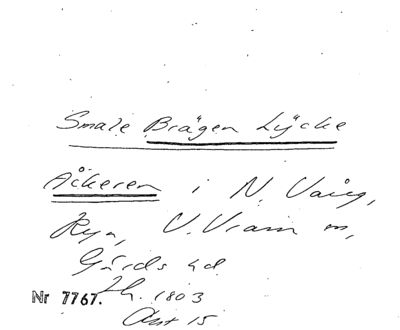 Smale Brägen Lÿcke
Åckeren i N. Vång,
Ryn, V. Vram m,
Gärds hd
Nr 7767. Lh. 1803
Akt 15